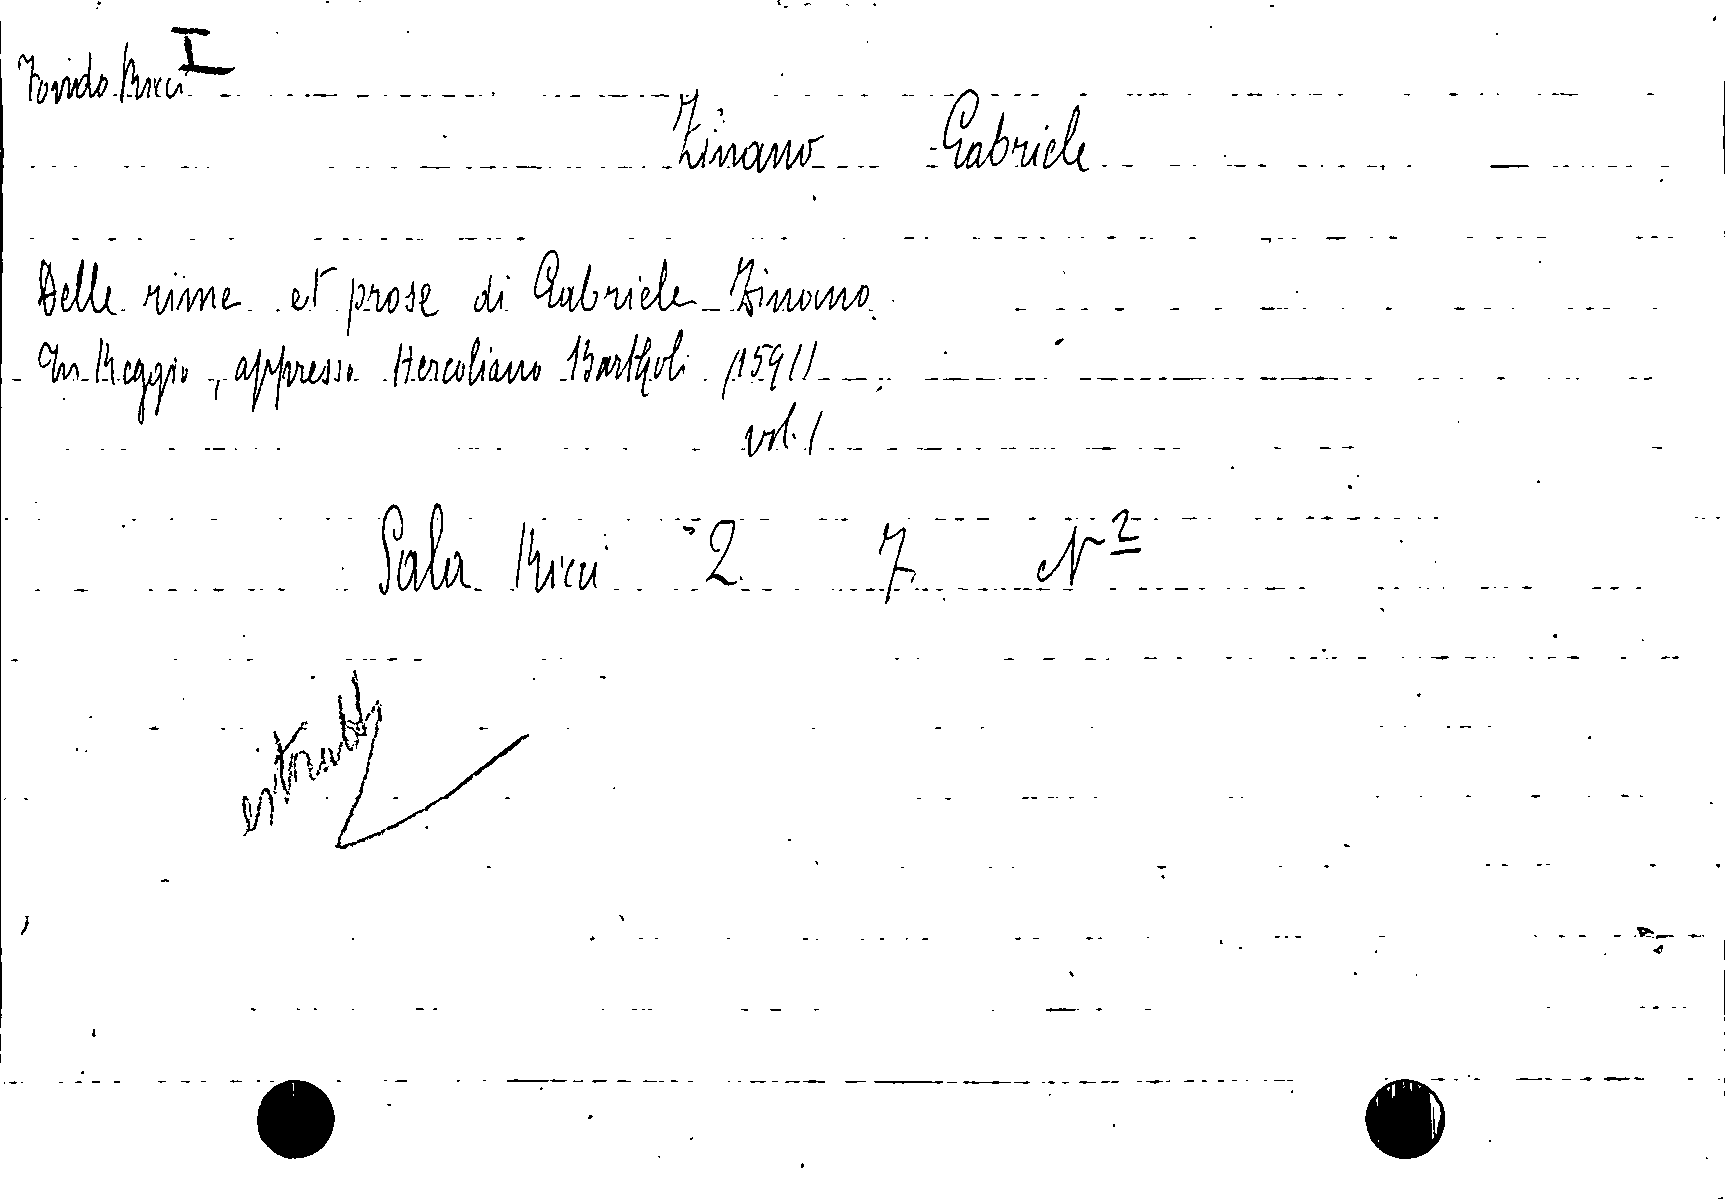 Fondo Ricci I
Zinano Gabriele
Delle rime et prose di Gabriele Zinano.
In Reggio, appresso Hercoliano Bartholi /1591/
vol. 1
Sala Ricci 2 7 N 2